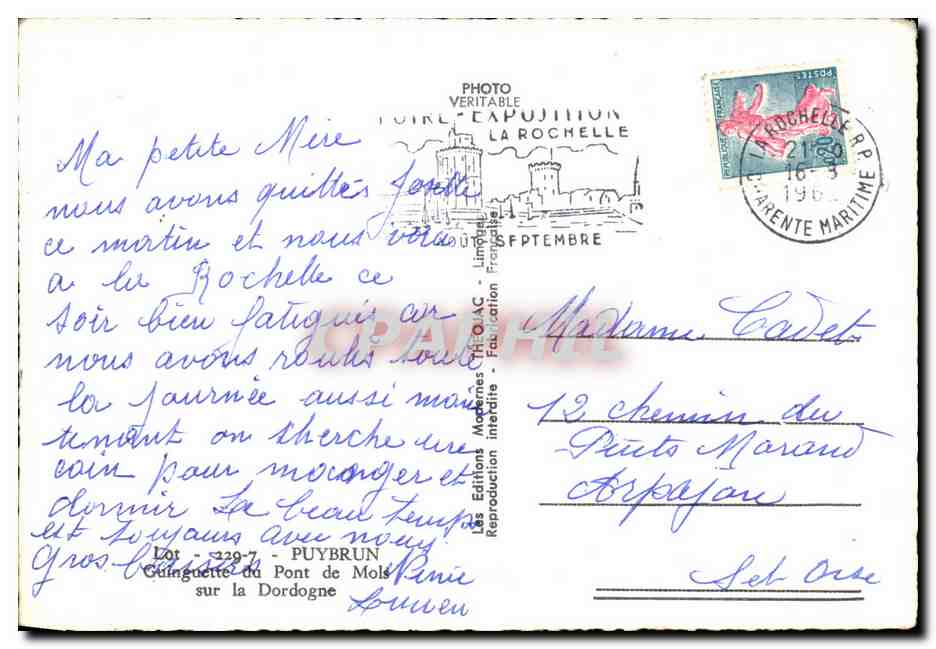 PHOTO
VERITABLE
FOIRE-EXPOSITION
LA ROCHELLE
AOÛT SEPTEMBRE
REPUBLIQUE FRANÇAISE
POSTES
0,20
LA ROCHELLE R.P.
16-8
196
CHARENTE MARITIME
Ma petite Mère
nous avons quittés Josette
ce matin et nous voila
a la Rochelle ce
soir bien fatigués car
nous avons roulés toute
la journée aussi main
tenant on cherche une
coin pour manger et
dormir Le beau temps
est toujours avec nous
Gros baisers Ninie
Lucien
Lot - 229-7 - PUYBRUN
Guinguette du Pont de Mols
sur la Dordogne
Les Editions Modernes THEOJAC - Limoges
Reproduction interdite - Fabrication Française
CPARHIL
Madame Cadet
12 chemin du
Puits Morand
Arpajon
Set Oise